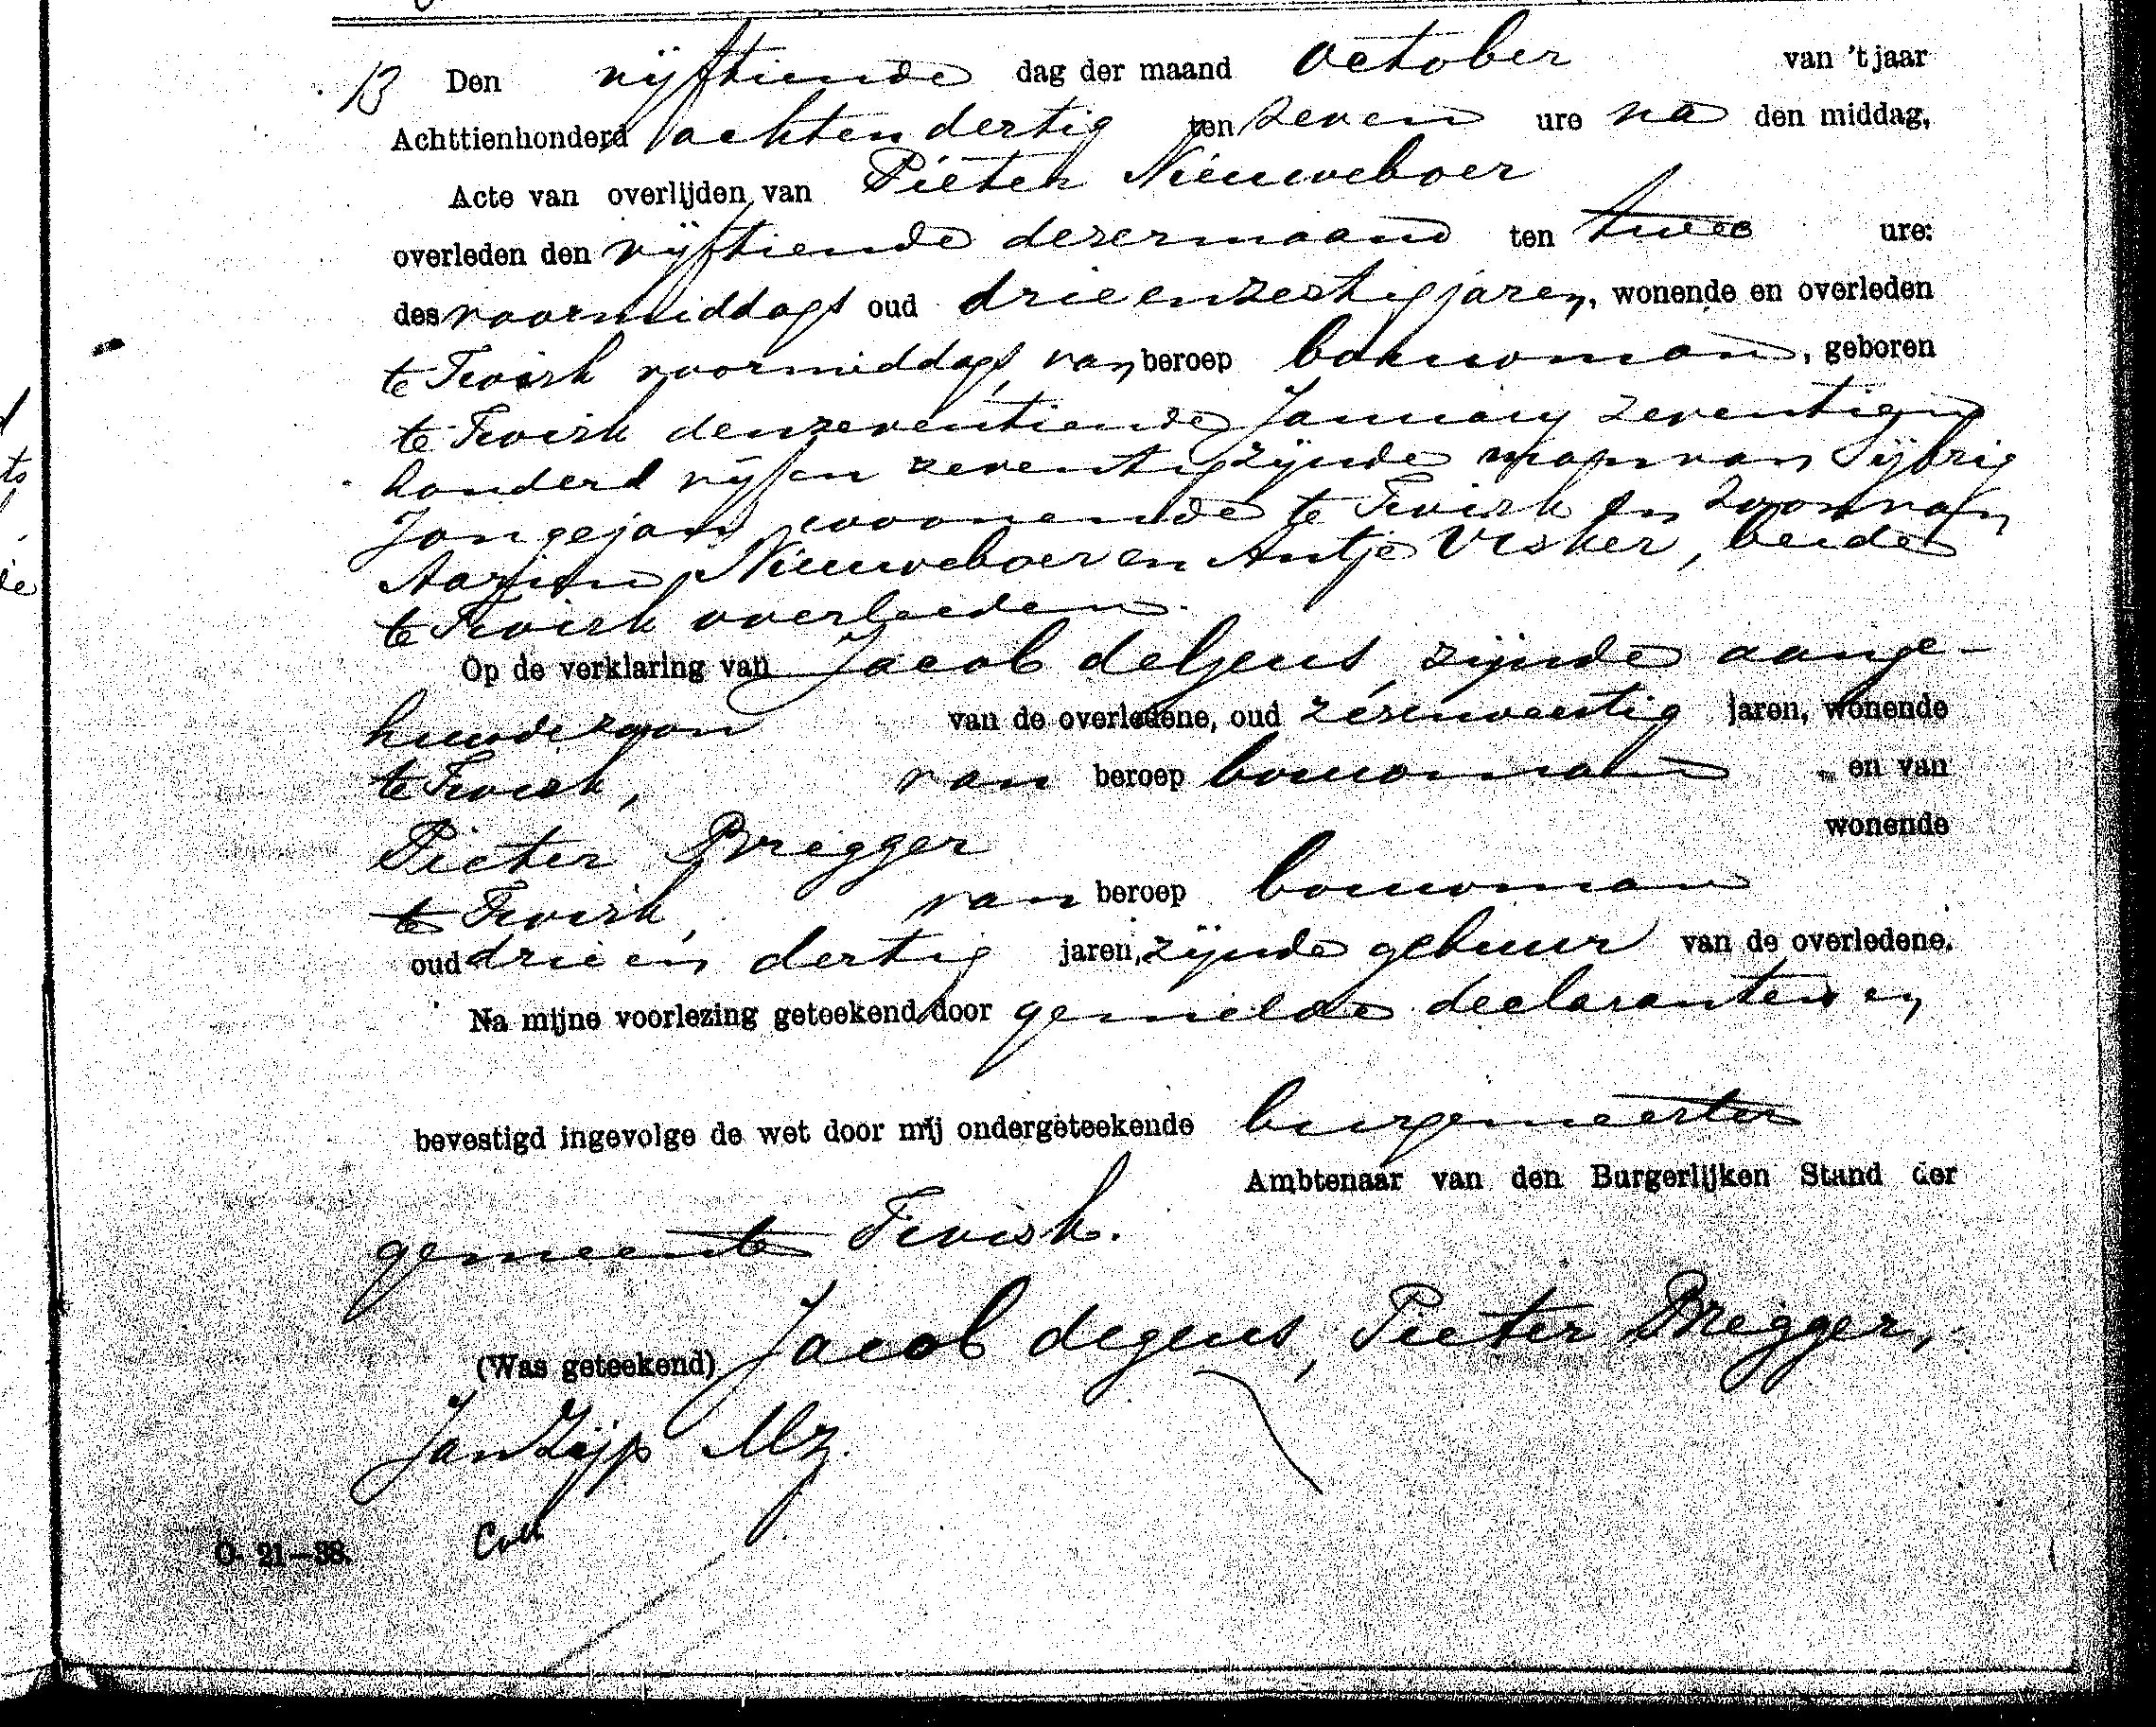 13 Den vijftiende dag der maand October van 't jaar
Achttienhonderd achtendertig ten zeven ure na den middag,
Acte van overlijden van Pieter Nieuweboer
overleden den vijftiende dezermaand ten twee ure:
des voormiddags oud drieenzestig jaren, wonende en overleden
te Twisk voormiddags, van beroep bouwman, geboren
te Twisk den zeventiende January zeventien
honderd vijfen zeventig zijnde man van Sijbrig
Jongejan woonende te Twisk en zoon van
Aarjan Nieuweboer en Antje Visker, beide
te Twisk overleeden.
Op de verklaring van Jacob deGeus zijnde aange-
huwde zoon van de overledene, oud zésenveertig jaren, wonende
te Twisk, van beroep bouwman en van
Pieter Bregger wonende
te Twisk, van beroep bouwman
oud drie en dertig jaren, zijnde gebuur van de overledene.
Na mijne voorlezing geteekend door gemelde declaranten en
bevestigd ingevolge de wet door mij ondergeteekende burgemeester
Ambtenaar van den Burgerlijken Stand der
gemeente Twisk.
(Was geteekend) Jacob degeus, Pieter Bregger,
Jan Zijp Mz.
Coll
O- 21—38.